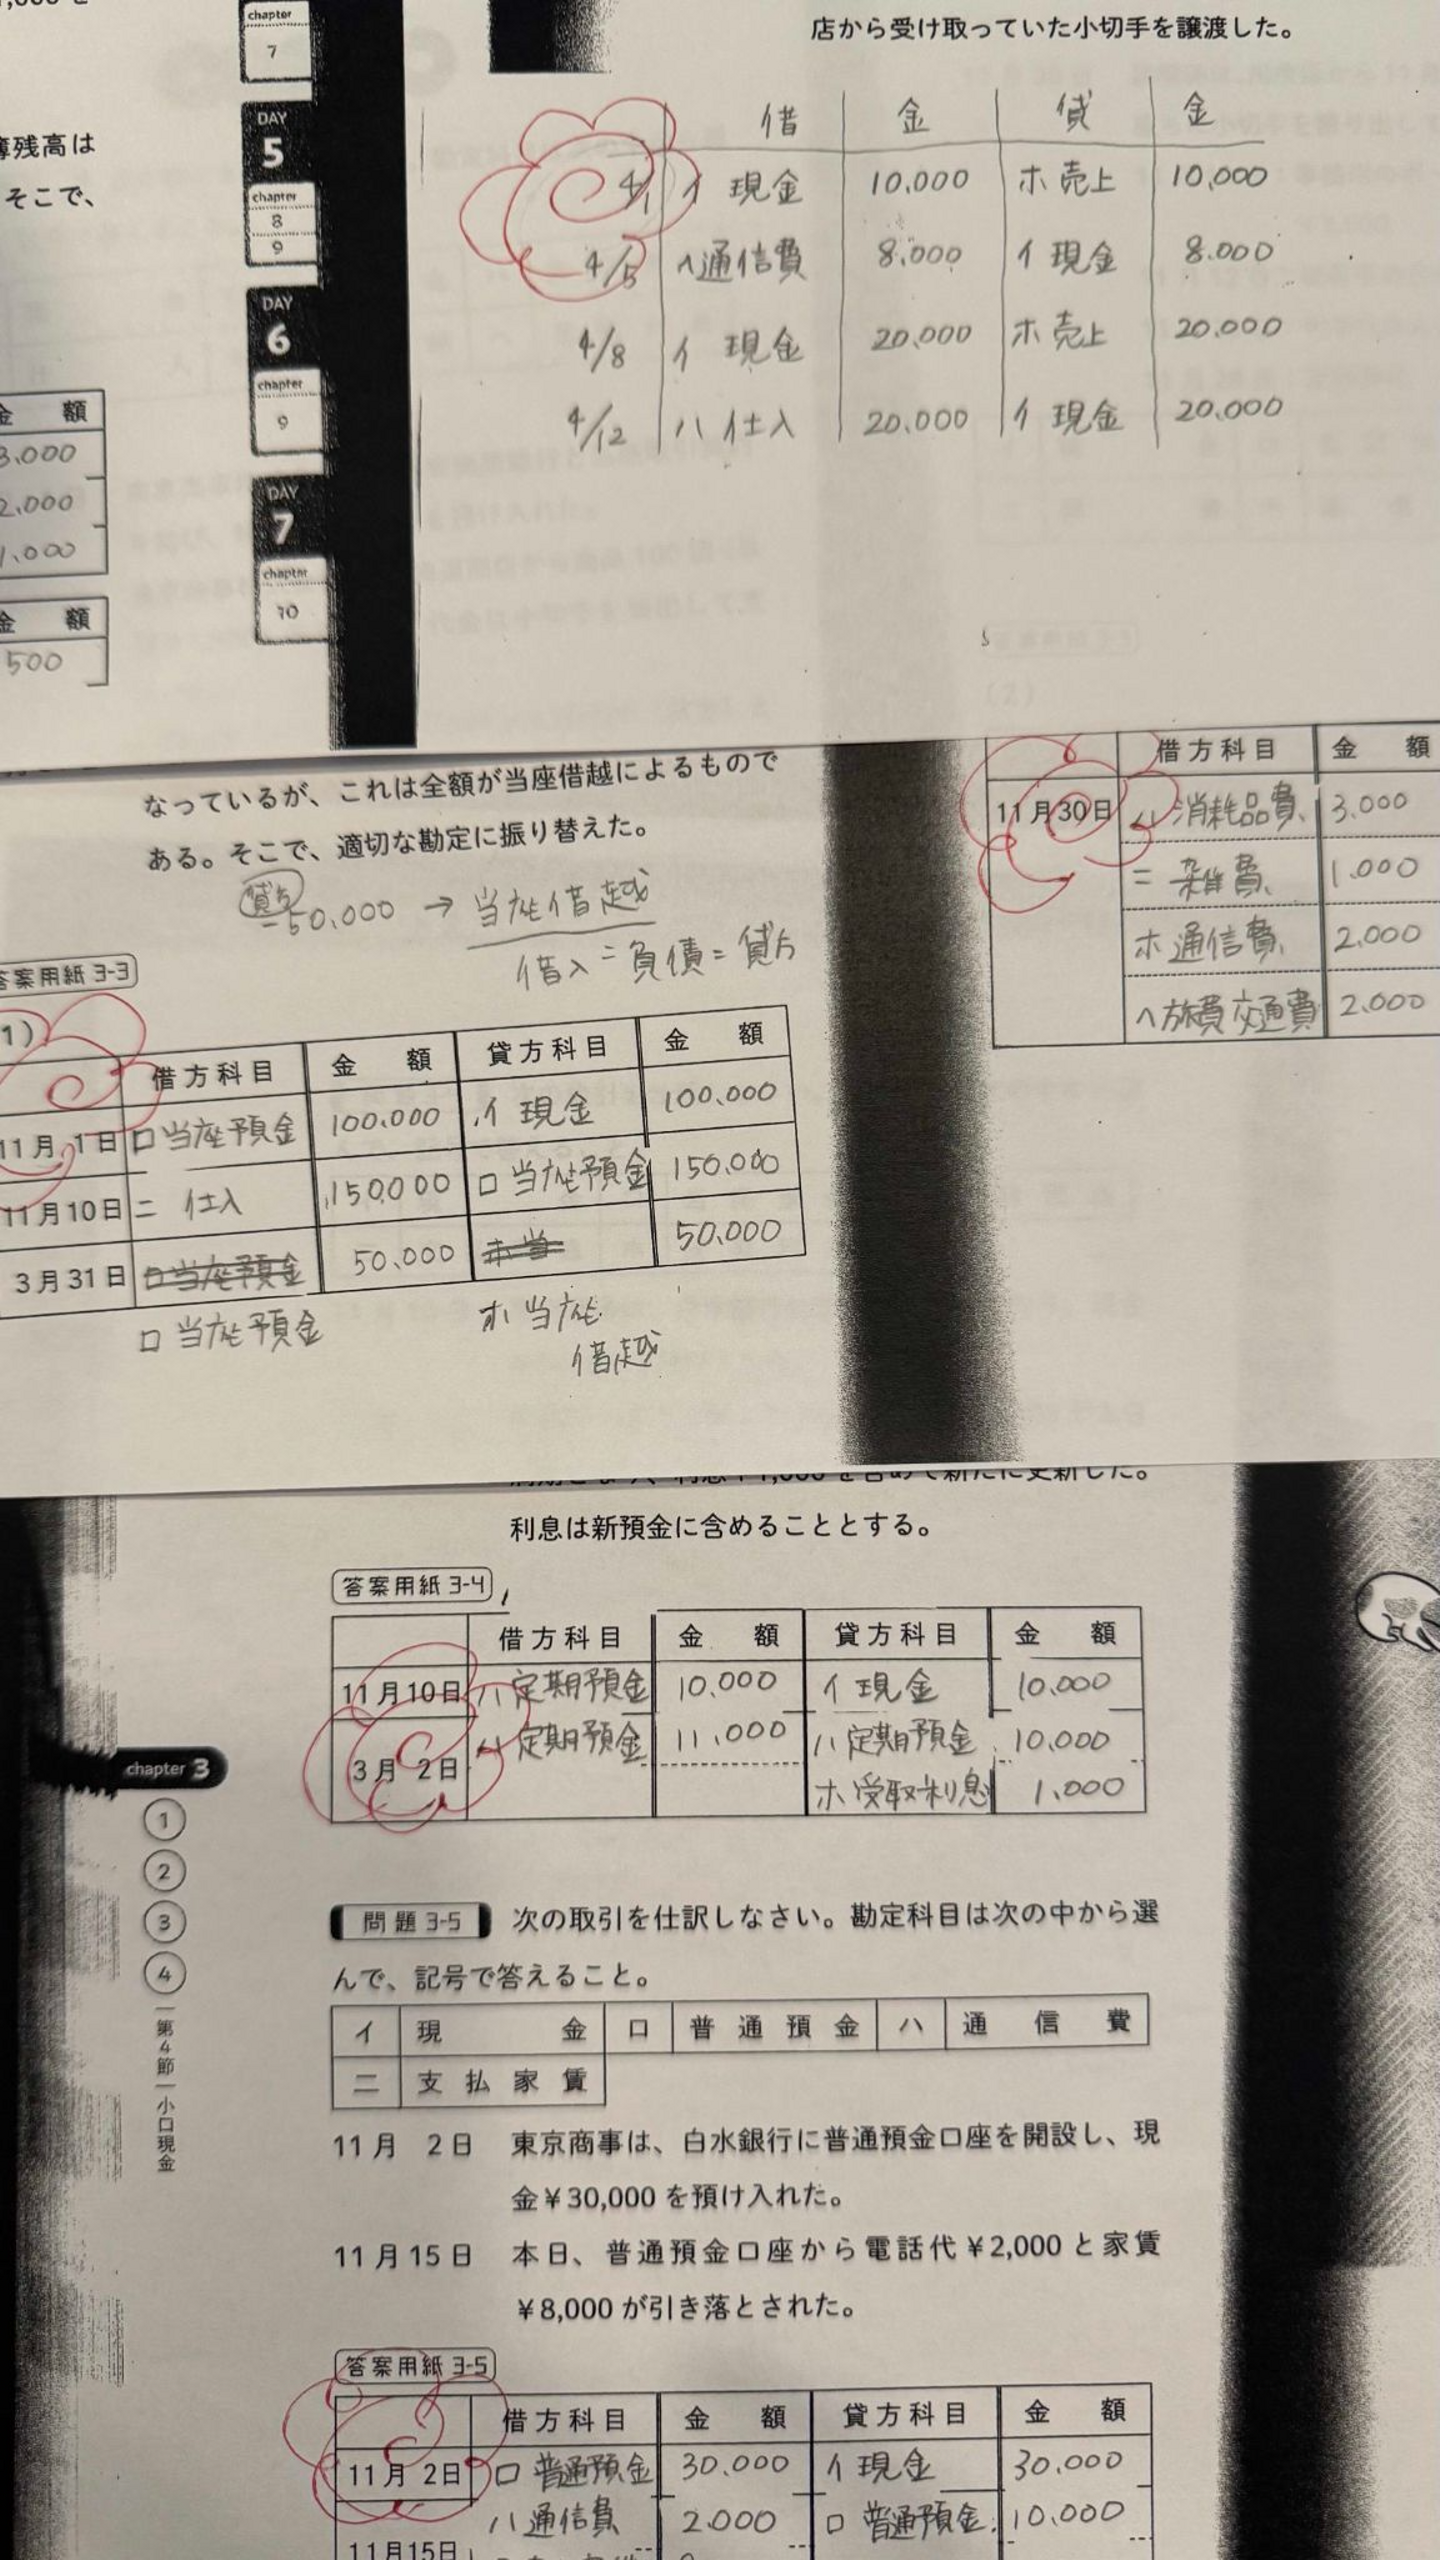 chapter
7
DAY
5
chapter
8
9
DAY
6
chapter
9
DAY
7
chapter
10
簿残高は
そこで、
金 額
3,000
2,000
1,000
金 額
500
店から受け取っていた小切手を譲渡した。
借 金 貸 金
4/1 イ 現金 10,000 ホ 売上 10,000
4/5 ヘ 通信費 8,000 イ 現金 8,000
4/8 イ 現金 20,000 ホ 売上 20,000
4/12 ハ 仕入 20,000 イ 現金 20,000
なっているが、これは全額が当座借越によるもので
ある。そこで、適切な勘定に振り替えた。
貸方
-50,000 → 当座借越
借入=負債=貸方
答案用紙 3-3
1)
借方科目 金 額 貸方科目 金 額
11月 1日 ロ 当座預金 100,000 イ 現金 100,000
11月10日 ニ 仕入 150,000 ロ 当座預金 150,000
3月31日 ロ当座預金 50,000 ホ 当 50,000
ロ 当座預金 ホ 当座
借越
(2)
借方科目 金 額
11月30日 ハ 消耗品費 3,000
ニ 雑費 1,000
ホ 通信費 2,000
ヘ 旅費交通費 2,000
利息は新預金に含めることとする。
答案用紙 3-4
借方科目 金 額 貸方科目 金 額
11月10日 ハ 定期預金 10,000 イ 現金 10,000
3月 2日 ハ 定期預金 11,000 ハ 定期預金 10,000
ホ 受取利息 1,000
chapter 3
1
2
3
4
第4節 小口現金
問題 3-5 次の取引を仕訳しなさい。勘定科目は次の中から選
んで、記号で答えること。
イ 現 金 ロ 普通預金 ハ 通信費
ニ 支払家賃
11月 2日 東京商事は、白水銀行に普通預金口座を開設し、現
金¥30,000を預け入れた。
11月15日 本日、普通預金口座から電話代¥2,000と家賃
¥8,000が引き落とされた。
答案用紙 3-5
借方科目 金 額 貸方科目 金 額
11月 2日 ロ 普通預金 30,000 イ 現金 30,000
ハ 通信費 2,000 ロ 普通預金 10,000
11月15日